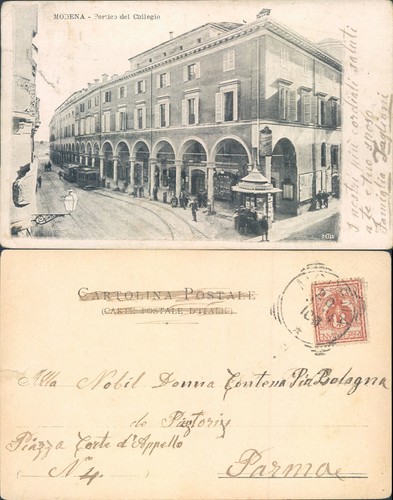 MODENA - Portico del Collegio
i nostri più cordiali saluti
a lei e suo sposo
Famiglia
CARTOLINA POSTALE
(CARTE POSTALE D'ITALIE)
Alla Nobil Donna Contessa Pia Bologna
de Pastoris
Piazza Corte d'Appello
N° 4.
Parma